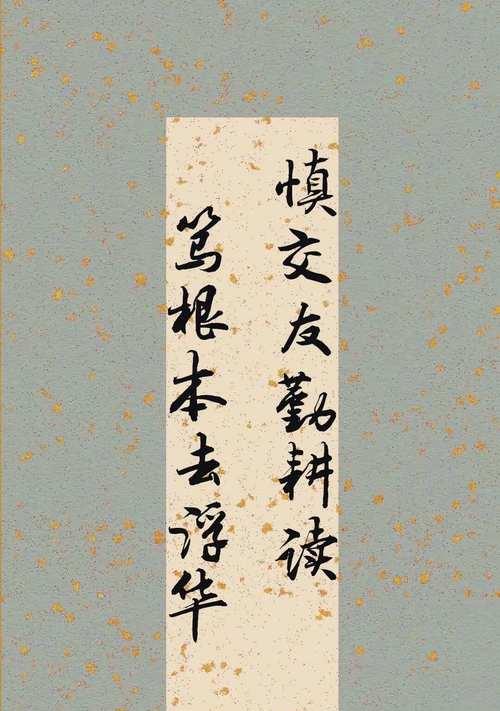 慎交友勤耕读
笃根本去浮华